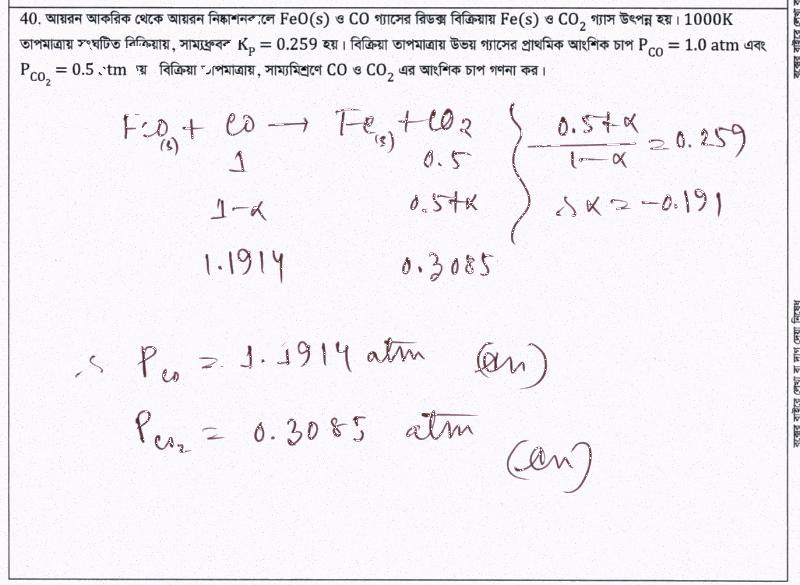 40. আয়রন আকরিক থেকে আয়রন নিষ্কাশনকালে FeO(s) ও CO গ্যাসের রিডক্স বিক্রিয়ায় Fe(s) ও CO₂ গ্যাস উৎপন্ন হয়। 1000K
তাপমাত্রায় সংঘটিত বিক্রিয়ায়, সাম্যধ্রুবক K_P = 0.259 হয়। বিক্রিয়া তাপমাত্রায় উভয় গ্যাসের প্রাথমিক আংশিক চাপ P_CO = 1.0 atm এবং
P_CO₂ = 0.5 atm হয় বিক্রিয়া তাপমাত্রায়, সাম্যমিশ্রণে CO ও CO₂ এর আংশিক চাপ গণনা কর।
FeO(s) + CO → Fe(s) + CO2
1 0.5
1-α 0.5+α
1.1914 0.3085
0.5+α / 1-α = 0.259
∴ α = -0.191
∴ P_CO = 1.1914 atm (an)
P_CO₂ = 0.3085 atm
(an)